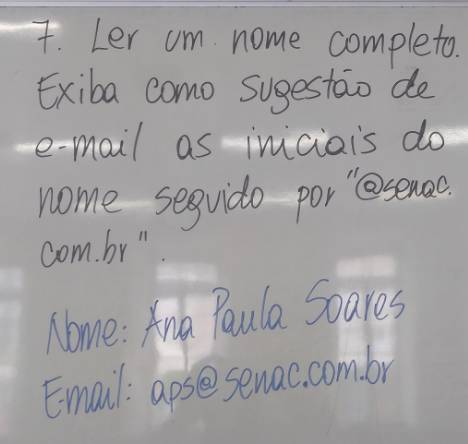 7. Ler um nome completo.
Exiba como sugestão de
e-mail as iniciais do
nome seguido por "@senac.
com.br".
Nome: Ana Paula Soares
E-mail: aps@senac.com.br